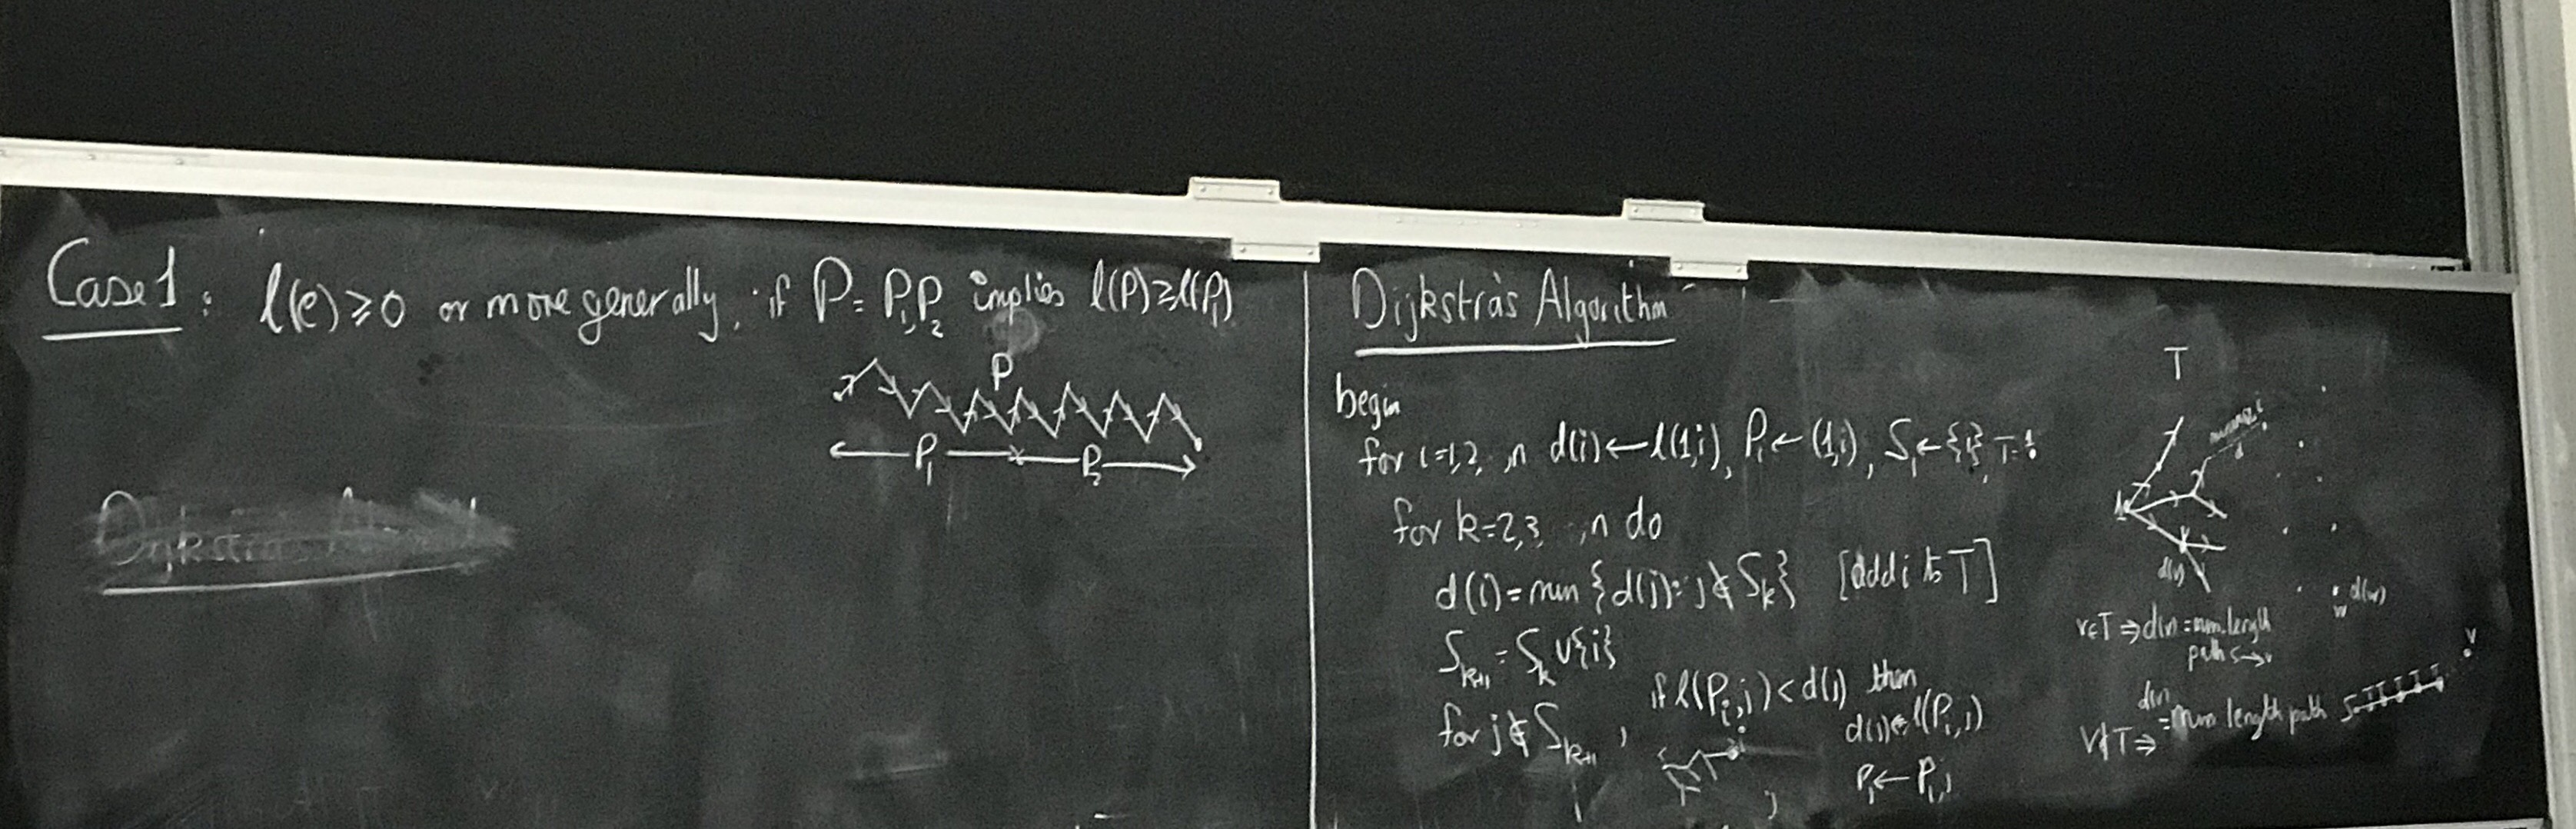 Case 1: l(e) ≥ 0 or more generally, if P = P₁,P₂ implies l(P) ≥ l(P₁)
P
P₁ P₂
Dijkstra's Algorithm
begin
for i=1,2, ,n d(i) ← l(1,i), Pᵢ ← (1,i), S₁ ← {1}, T = 1
for k=2,3, ,n do
d(i) = min {d(j): j ∉ Sₖ} [add i to T]
Sₖ₊₁ = Sₖ ∪ {i}
for j ∉ Sₖ₊₁, if l(Pᵢ,j) < d(j) then
d(j) ← l(Pᵢ,j)
Pⱼ ← Pᵢ,j
i
j
T
1
d(v)
d(w)
w
v∈T ⇒ d(v) = min. length
path s→v
v∉T ⇒ d(v) = min. length path s
v